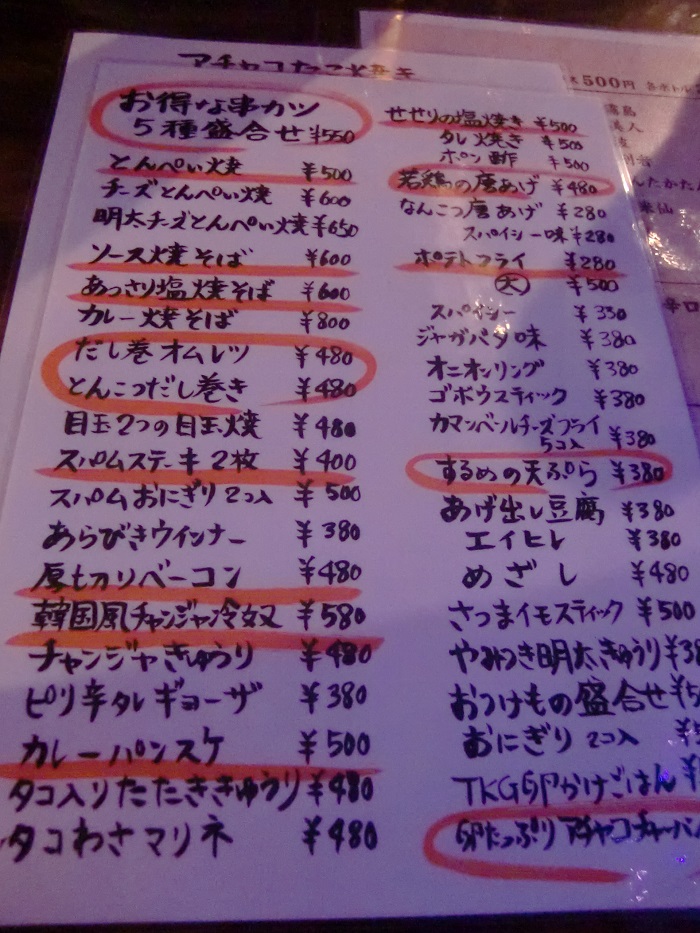 アチャコたこ焼き
お得な串カツ
5種盛合せ ¥550
とんぺい焼 ¥500
チーズとんぺい焼 ¥600
明太チーズとんぺい焼 ¥650
ソース焼そば ¥600
あっさり塩焼そば ¥600
カレー焼そば ¥800
だし巻オムレツ ¥480
とんこつだし巻き ¥480
目玉2つの目玉焼 ¥480
スパムステーキ2枚 ¥400
スパムおにぎり2コ入 ¥500
あらびきウインナー ¥380
厚切リベーコン ¥480
韓国風チャンジャ冷奴 ¥580
チャンジャきゅうり ¥480
ピリ辛タレギョーザ ¥380
カレーパンスケ ¥500
タコ入りたたききゅうり ¥480
タコわさマリネ ¥480
せせりの塩焼き ¥500
タレ焼き ¥500
ポン酢 ¥500
若鶏の唐あげ ¥480
なんこつ唐あげ ¥280
スパイシー味 ¥280
ポテトフライ ¥280
大 ¥500
スパイシー ¥330
ジャガバタ味 ¥380
オニオンリング ¥380
ゴボウスティック ¥380
カマンベールチーズフライ
5コ入 ¥380
するめの天ぷら ¥380
あげ出し豆腐 ¥380
エイヒレ ¥380
めざし ¥480
さつまイモスティック ¥500
やみつき明太きゅうり ¥38
おつけもの盛合せ ¥5
おにぎり 2コ入 ¥5
TKG卵かけごはん ¥
卵たっぷりアチャコチャーハン
500円 各ボトル
霧島
美人
んたかた
辛口